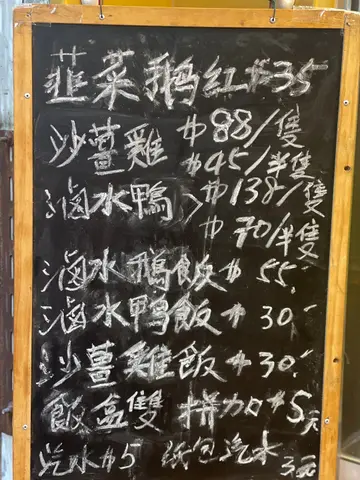 韮菜鵝紅$35
沙薑雞 $88/隻
$45/半隻
滷水鴨 > $138/隻
$70/半隻
滷水鵝飯$55.-
滷水鴨飯$30.-
沙薑雞飯$30.-
飯盒雙拼加$5元
汽水$5 紙包汽水3元